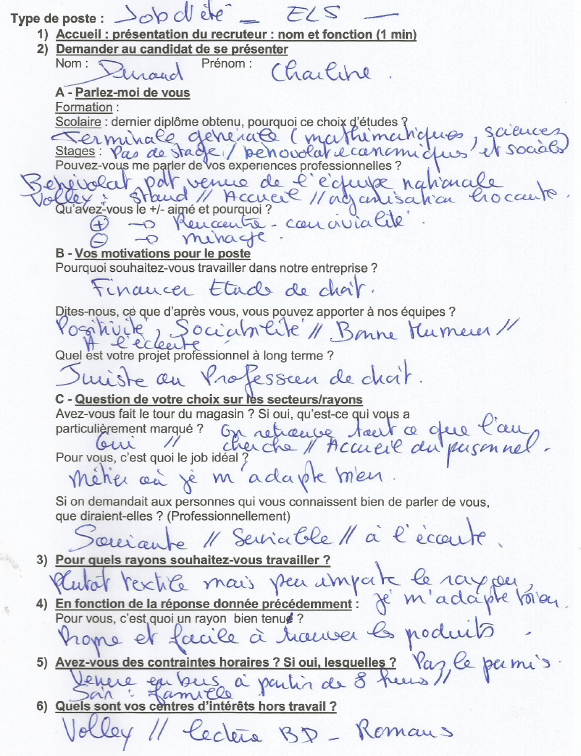 Type de poste : Job d'été – ELS –
1) Accueil : présentation du recruteur : nom et fonction (1 min)
2) Demander au candidat de se présenter
Nom : Durand Prénom : Charline.
A - Parlez-moi de vous
Formation :
Scolaire : dernier diplôme obtenu, pourquoi ce choix d'études ?
Terminale générale (mathématiques, sciences
Stages : Pas de stage / bénévolat économiques et socials
Pouvez-vous me parler de vos experiences professionnelles ?
Bénévolat pdt venue de l'équipe nationale
Volley : Stand // Accueil // organisation brocante.
Qu'avez-vous le +/- aimé et pourquoi ?
+ → Rencontre - convivialité.
- → ménage.
B - Vos motivations pour le poste
Pourquoi souhaitez-vous travailler dans notre entreprise ?
Financer Etude de droit.
Dites-nous, ce que d'après vous, vous pouvez apporter à nos équipes ?
Positivité, Sociabilité // Bonne Humeur //
A l'écoute
Quel est votre projet professionnel à long terme ?
Juriste ou Professeur de droit.
C - Question de votre choix sur les secteurs/rayons
Avez-vous fait le tour du magasin ? Si oui, qu'est-ce qui vous a
particulièrement marqué ? On retrouve tout ce que l'on
Oui // cherche // Accueil du personnel.
Pour vous, c'est quoi le job idéal ?
Métier où je m'adapte bien.
Si on demandait aux personnes qui vous connaissent bien de parler de vous,
que diraient-elles ? (Professionnellement)
Souriante // Serviable // à l'écoute.
3) Pour quels rayons souhaitez-vous travailler ?
Plutôt textile mais peu importe le rayon,
4) En fonction de la réponse donnée précédemment : je m'adapte bien.
Pour vous, c'est quoi un rayon bien tenu ?
Propre et facile à trouver les produits.
5) Avez-vous des contraintes horaires ? Si oui, lesquelles ? Pas le permis.
Venue en bus à partir de 8 heures //
Soir : famille
6) Quels sont vos centres d'intérêts hors travail ?
Volley // lecture BD - Romans